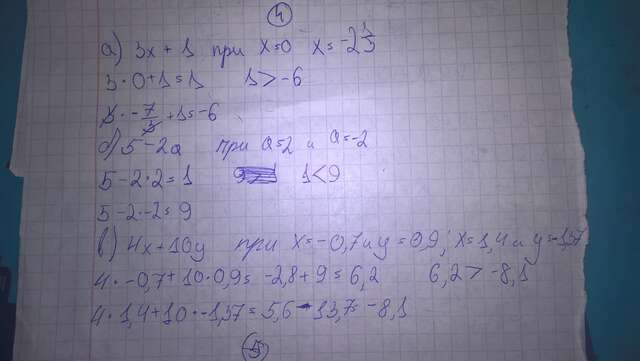 ④
а) 3x + 1 при x=0 x=-2⅓
3·0+1=1 1>-6
3·-7/3+1=-6
б) 5-2a при a=2 и a=-2
5-2·2=1 1<9
5-2·-2=9
в) 4x+10y при x=-0,7 и y=0,9, x=1,4 и y=-1,37
4·-0,7+10·0,9=-2,8+9=6,2 6,2>-8,1
4·1,4+10·-1,37=5,6-13,7-8,1
⑤